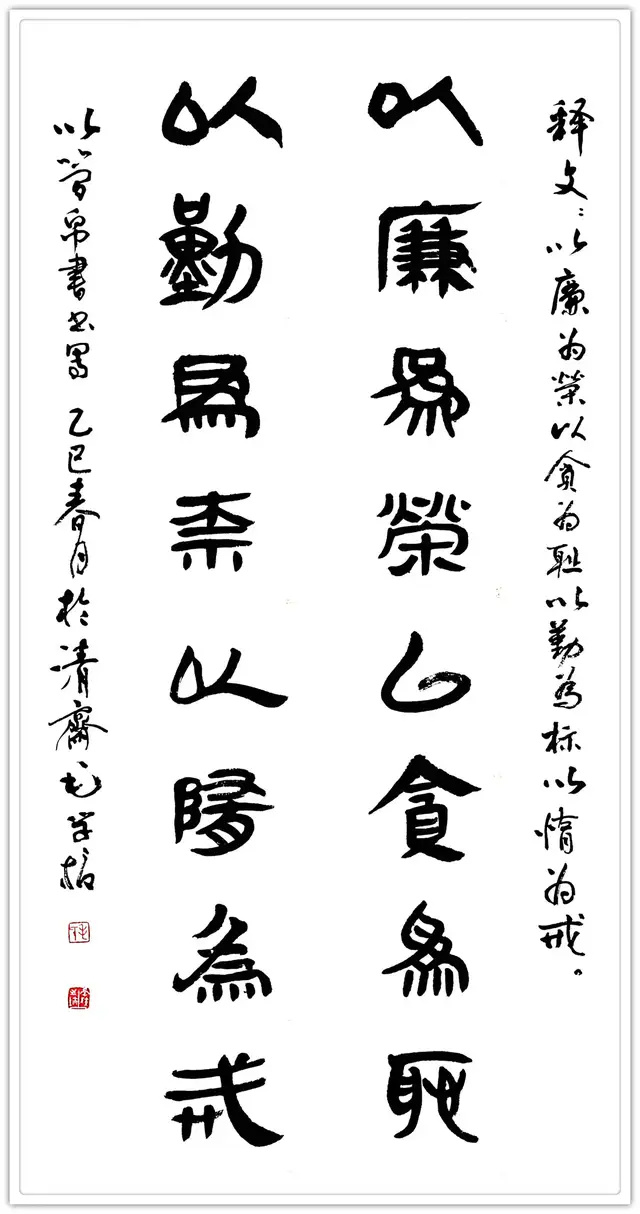 释文：以廉为荣以贪为耻以勤为标以惰为戒。
以廉為榮以貪為耻
以勤為标以隋為戒
以简帛書书写 乙巳春月於清齋毛学